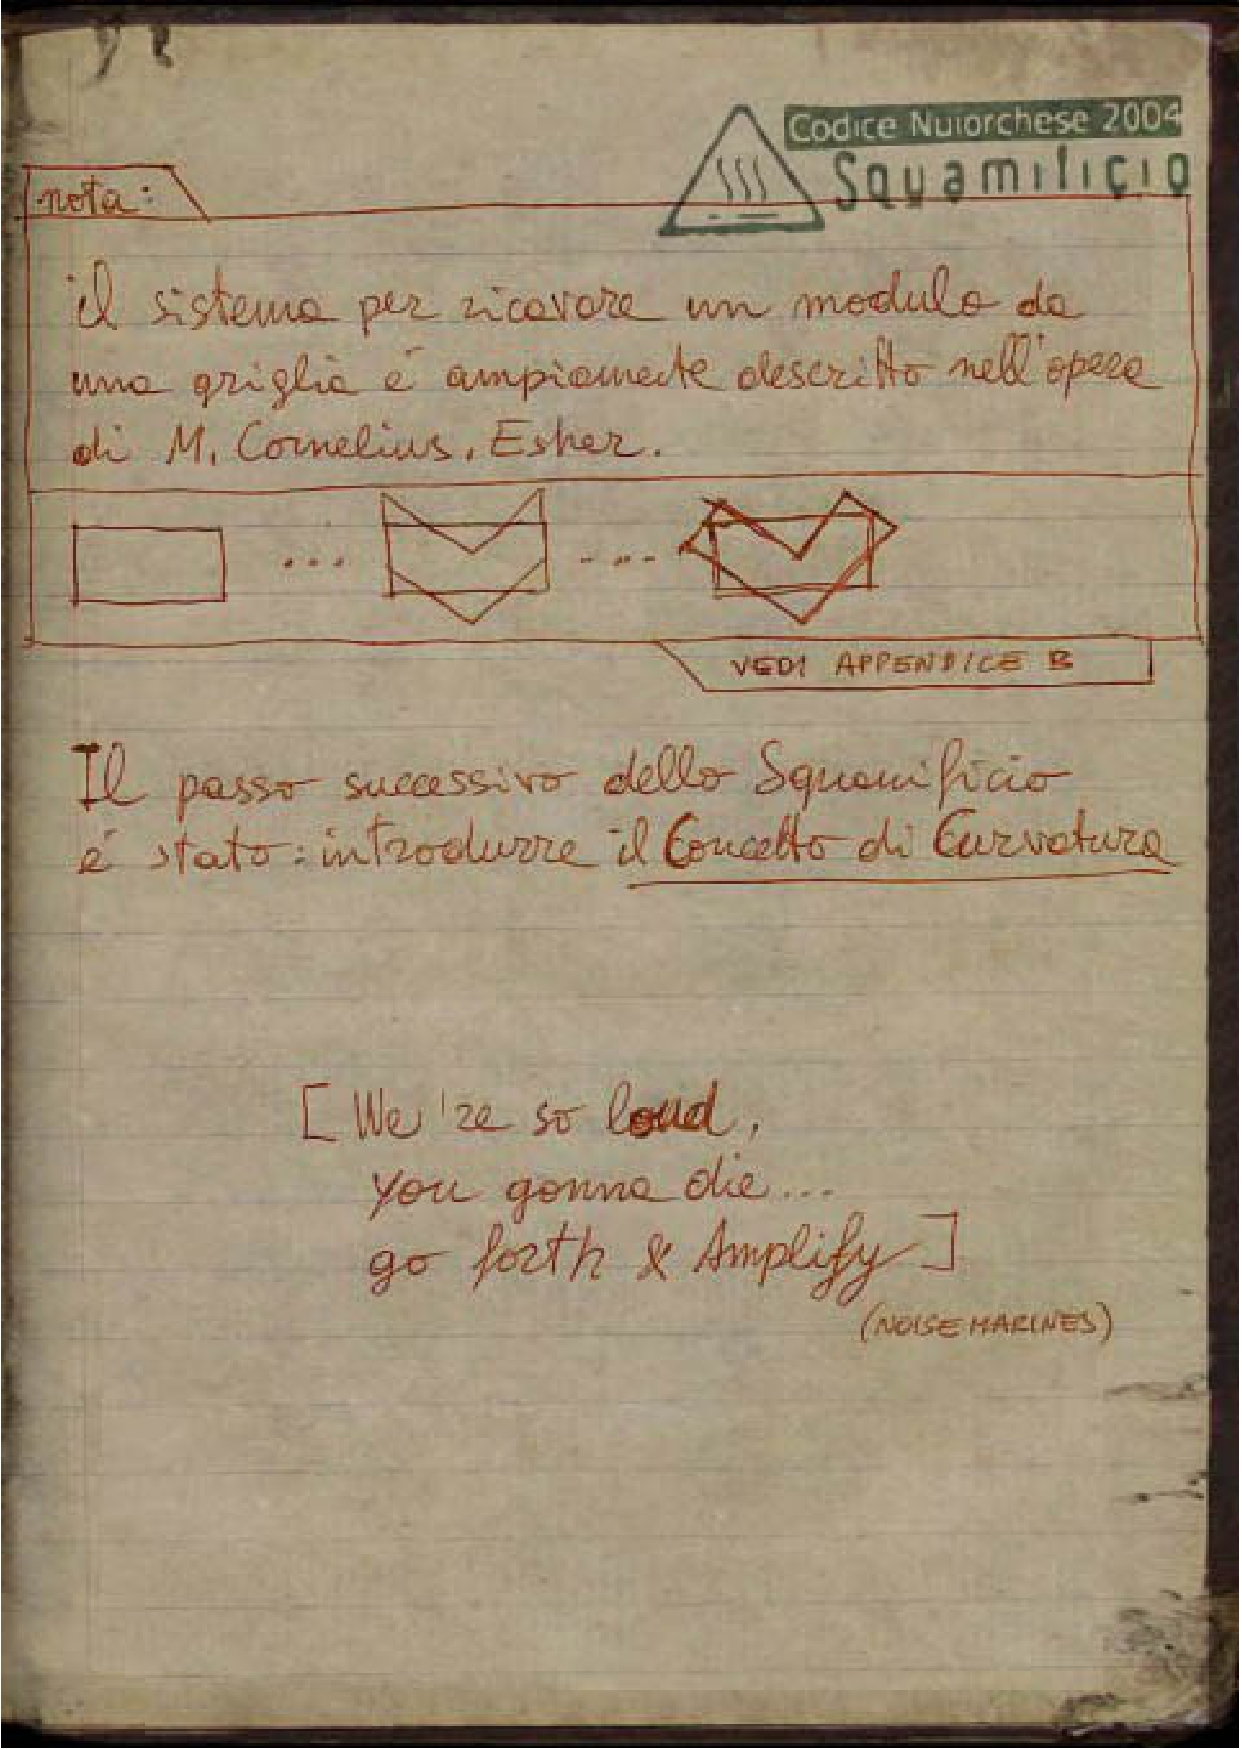 Codice Nuiorchese 2004
Squamificio
nota:
il sistema per ricavare un modulo da
una griglia é ampiamente descritto nell'opera
di M. Cornelius. Esher.
VEDI APPENDICE B
Il passo successivo dello Squamificio
é stato: introdurre il Concetto di Curvatura
[We're so loud,
you gonna die...
go forth & Amplify]
(NOISE MARINES)